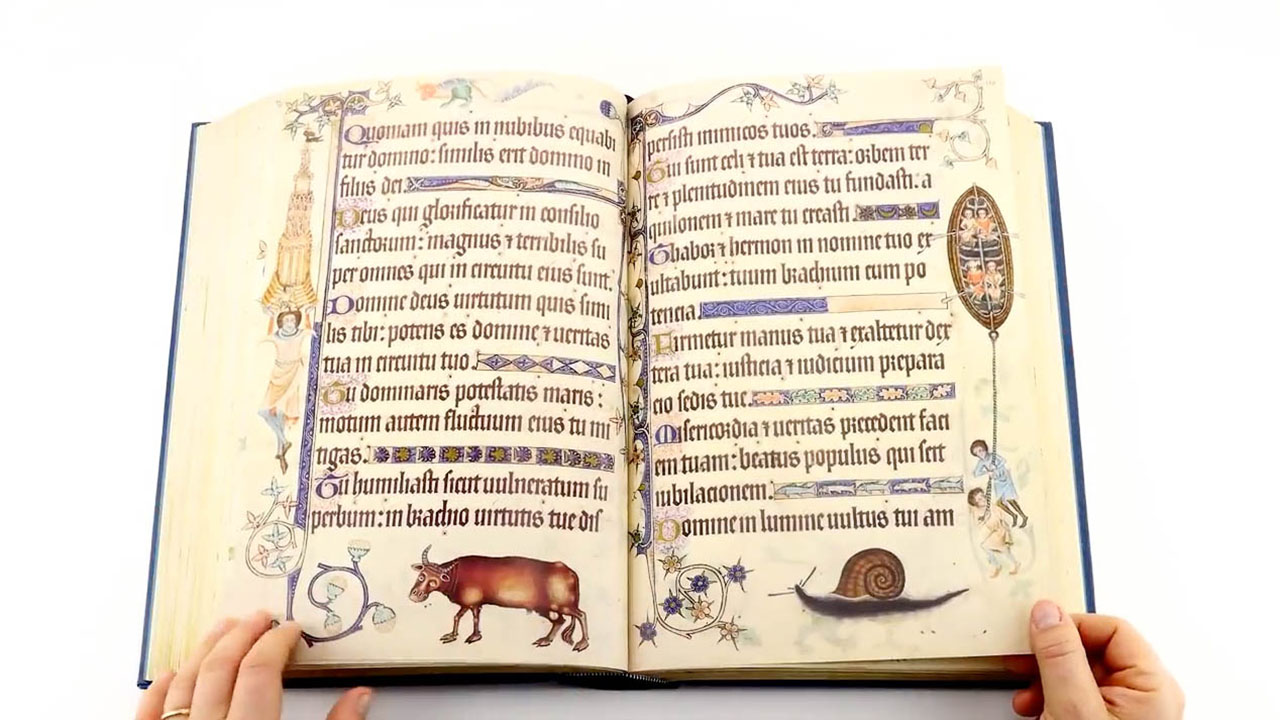 Quoniam quis in nubibus equabi
tur domino: similis erit domino in
filiis dei.
Deus qui glorificatur in consilio
sanctorum: magnus ⁊ terribilis su
per omnes qui in circuitu eius sunt.
Domine deus uirtutum quis simi
lis tibi: potens es domine ⁊ ueritas
tua in circuitu tuo.
Tu dominaris potestatis maris:
motum autem fluctuum eius tu mi
tigas.
Tu humiliasti sicut uulneratum su
perbum: in brachio uirtutis tue dis
persisti inimicos tuos.
Tui sunt celi ⁊ tua est terra: orbem ter
re ⁊ plenitudinem eius tu fundasti. a
quilonem ⁊ mare tu creasti.
Thabor ⁊ hermon in nomine tuo ex
ultabunt: tuum brachium cum po
tencia.
Firmetur manus tua ⁊ exaltetur dex
tera tua: iusticia ⁊ iudicium prepara
cio sedis tue.
Misericordia ⁊ ueritas precedent faci
em tuam: beatus populus qui scit
iubilacionem.
Domine in lumine uultus tui am